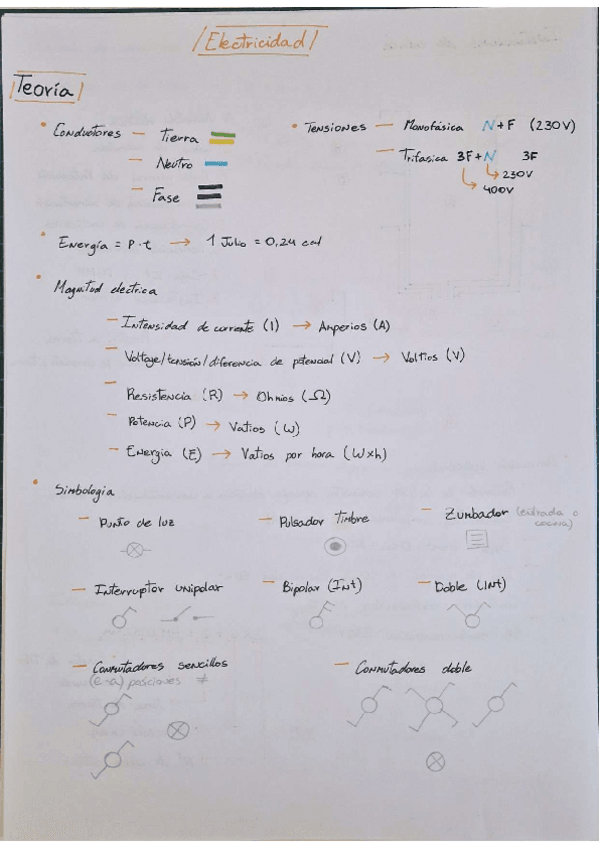 Electricidad
Teoría
• Conductores — Tierra
— Neutro
— Fase
• Tensiones — Monofásica N+F (230V)
— Trifasica 3F+N 3F
→ 230V
→ 400V
• Energía = P·t → 1 Julio = 0,24 cal
• Magnitud electrica
— Intensidad de corriente (I) → Amperios (A)
— Voltaje/tensión/diferencia de potencial (V) → Voltios (V)
— Resistencia (R) → Ohmios (Ω)
— Potencia (P) → Vatios (W)
— Energia (E) → Vatios por hora (W×h)
• Simbologia
— Punto de luz — Pulsador Timbre — Zumbador (entrada o
cocina)
— Interruptor unipolar — Bipolar (Int) — Doble (Int)
— Conmutadores sencillos — Conmutadores doble
posiciones ≠